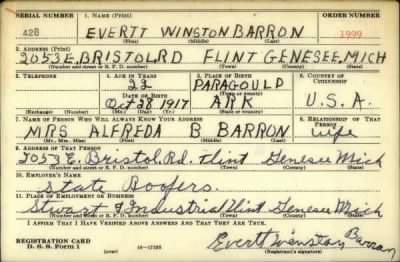 SERIAL NUMBER 1. NAME (Print) ORDER NUMBER
428 EVERTT WINSTON BARRON 1999
(First) (Middle) (Last)
2. ADDRESS (Print)
2053 E. BRISTOL RD FLINT GENESEE, MICH
(Number and street or R. F. D. number) (Town) (County) (State)
3. TELEPHONE 4. AGE IN YEARS 5. PLACE OF BIRTH 6. COUNTRY OF CITIZENSHIP
22 PARAGOULD
DATE OF BIRTH (Town or county)
Oct 28 1917 ARK U.S.A.
(Exchange) (Number) (Mo.) (Day) (Yr.) (State or country)
7. NAME OF PERSON WHO WILL ALWAYS KNOW YOUR ADDRESS 8. RELATIONSHIP OF THAT PERSON
MRS ALFREDA B BARRON wife
(Mr., Mrs., Miss) (First) (Middle) (Last)
9. ADDRESS OF THAT PERSON
2053 E. Bristol Rd. Flint Genesee Mich
(Number and street or R. F. D. number) (Town) (County) (State)
10. EMPLOYER'S NAME
State Roofers.
11. PLACE OF EMPLOYMENT OR BUSINESS
Stewart & Industrial Flint Genesee Mich
(Number and street or R. F. D. number) (Town) (County) (State)
I AFFIRM THAT I HAVE VERIFIED ABOVE ANSWERS AND THAT THEY ARE TRUE.
REGISTRATION CARD
D. S. S. Form 1 (over) Evertt Winston Barron
(Registrant's signature)